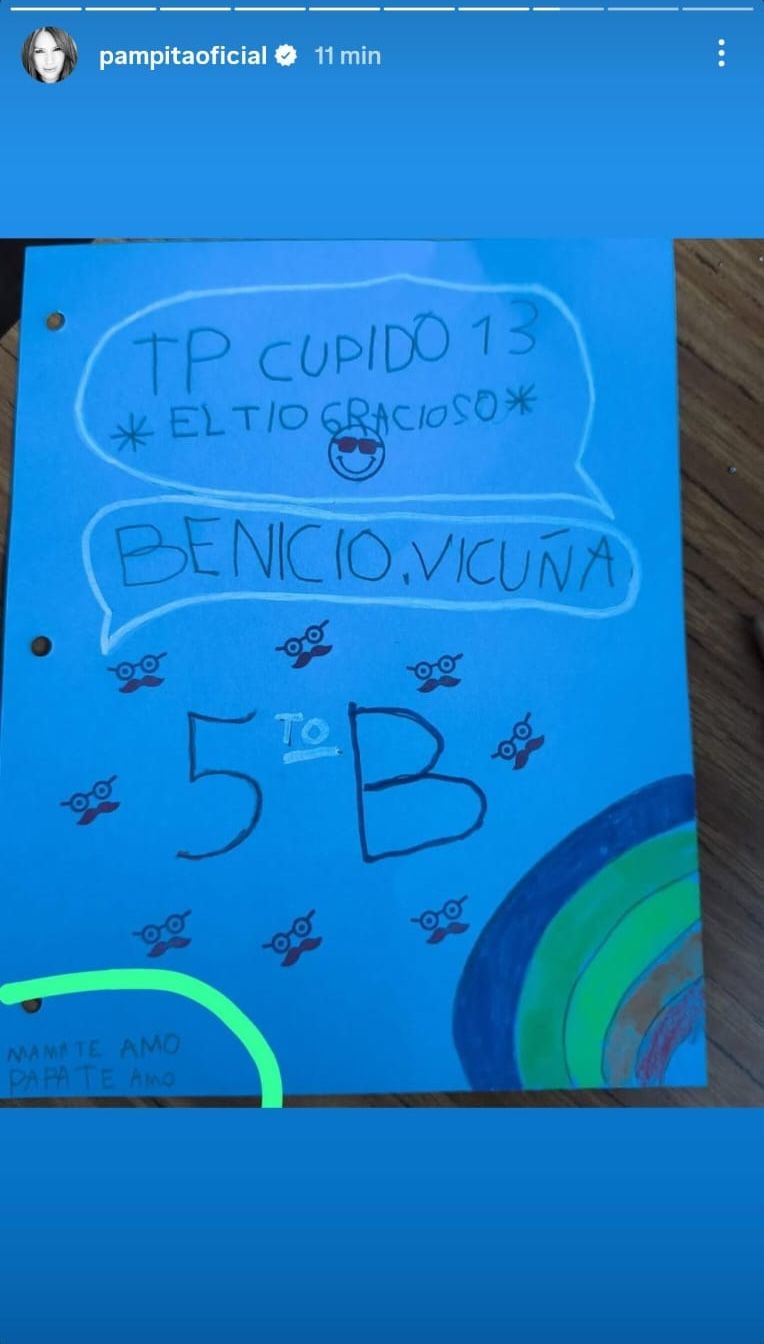 pampitaoficial 11 min
TP CUPIDO 13
* EL TIO GRACIOSO *
BENICIO.VICUÑA
5 TO B
MAMA TE AMO
PAPA TE AMO